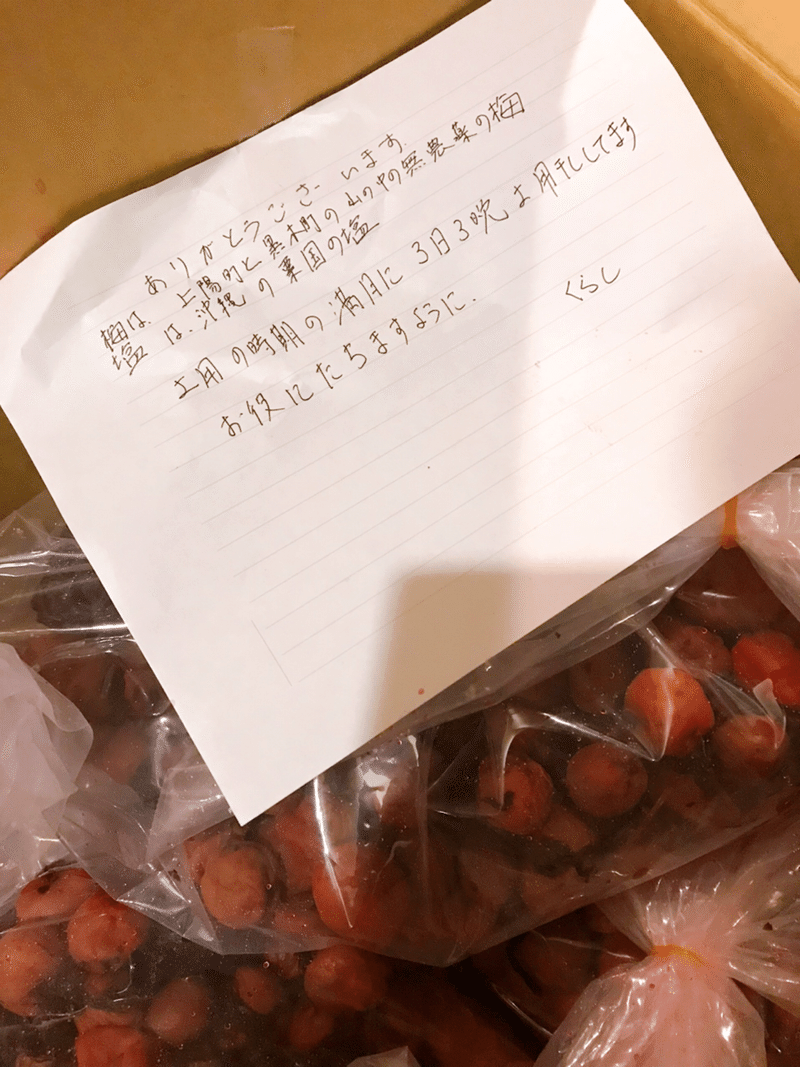 ありがとうございます.
梅は、上陽町と黒木町の山の中の無農薬の梅
塩は、沖縄の粟国の塩
土用の時期の満月に3日3晩土用干ししてます
お役にたちますように.
くらし